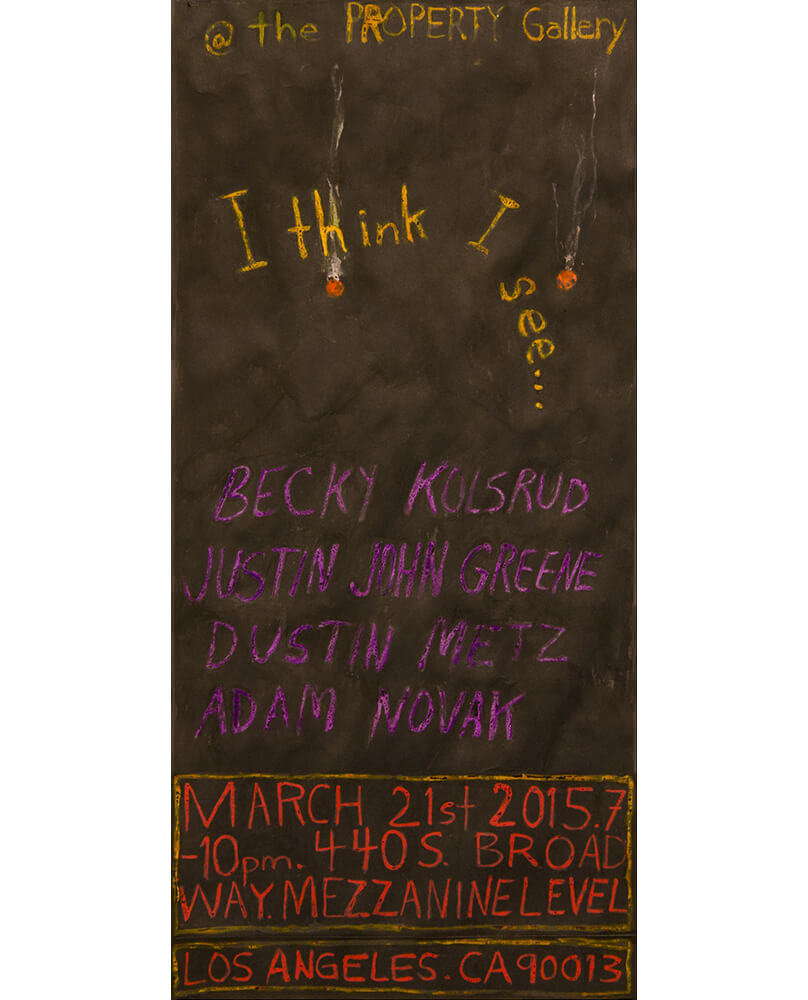 @ the PROPERTY Gallery
I think I
see....
BECKY KOLSRUD
JUSTIN JOHN GREENE
DUSTIN METZ
ADAM NOVAK
MARCH 21st 2015.7
-10pm. 440 S. BROAD
WAY. MEZZANINE LEVEL
LOS ANGELES. CA 90013